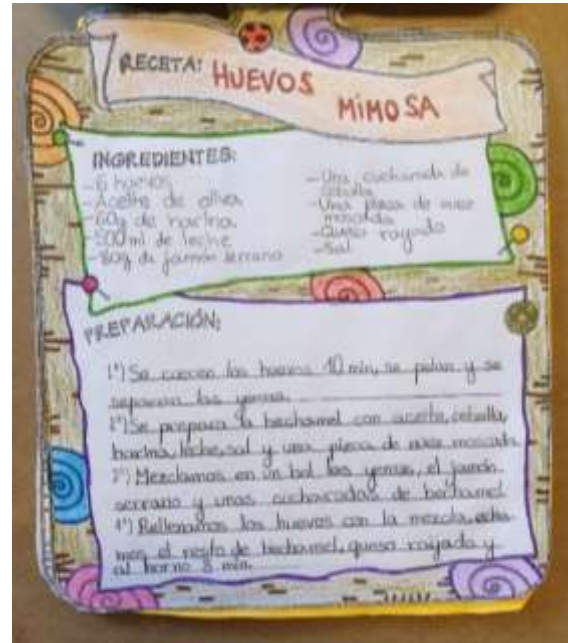 RECETA: HUEVOS
MIMOSA
INGREDIENTES:
- 6 huevos
- Aceite de oliva
- 60g de harina
- 500ml de leche
- 80g de jamón serrano
- Una cucharada de
cebolla
- Una pizca de nuez
moscada
- Queso rayado
- Sal
PREPARACIÓN:
1º) Se cuecen los huevos 10 min, se pelan y se
separan las yemas.
2º) Se prepara la bechamel con aceite, cebolla,
harina, leche, sal y una pizca de nuez moscada.
3º) Mezclamos en un bol las yemas, el jamón
serrano y unas cucharadas de bechamel.
4º) Rellenamos los huevos con la mezcla, echa-
mos el resto de bechamel, queso rayado y
al horno 8 min.